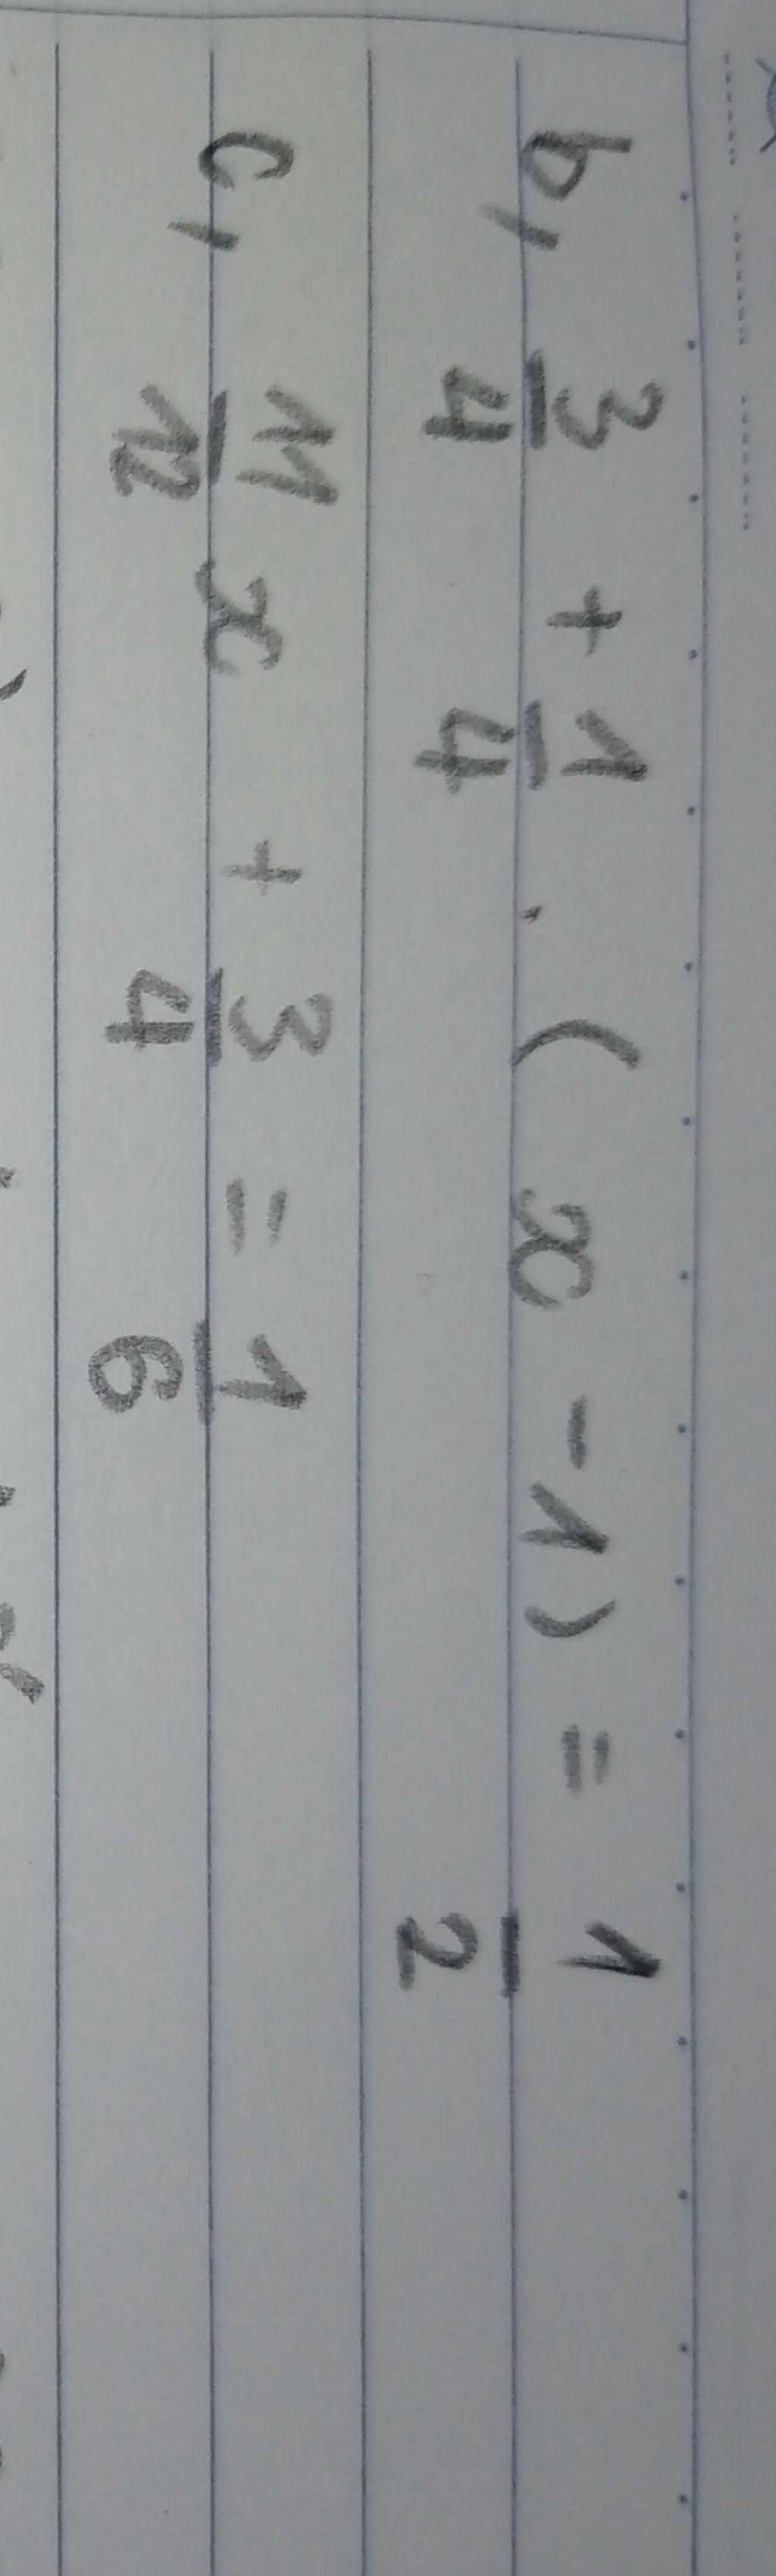 b, 3/4 + 1/4 . ( x - 1 ) = 1/2
c, 11/12 x + 3/4 = 1/6